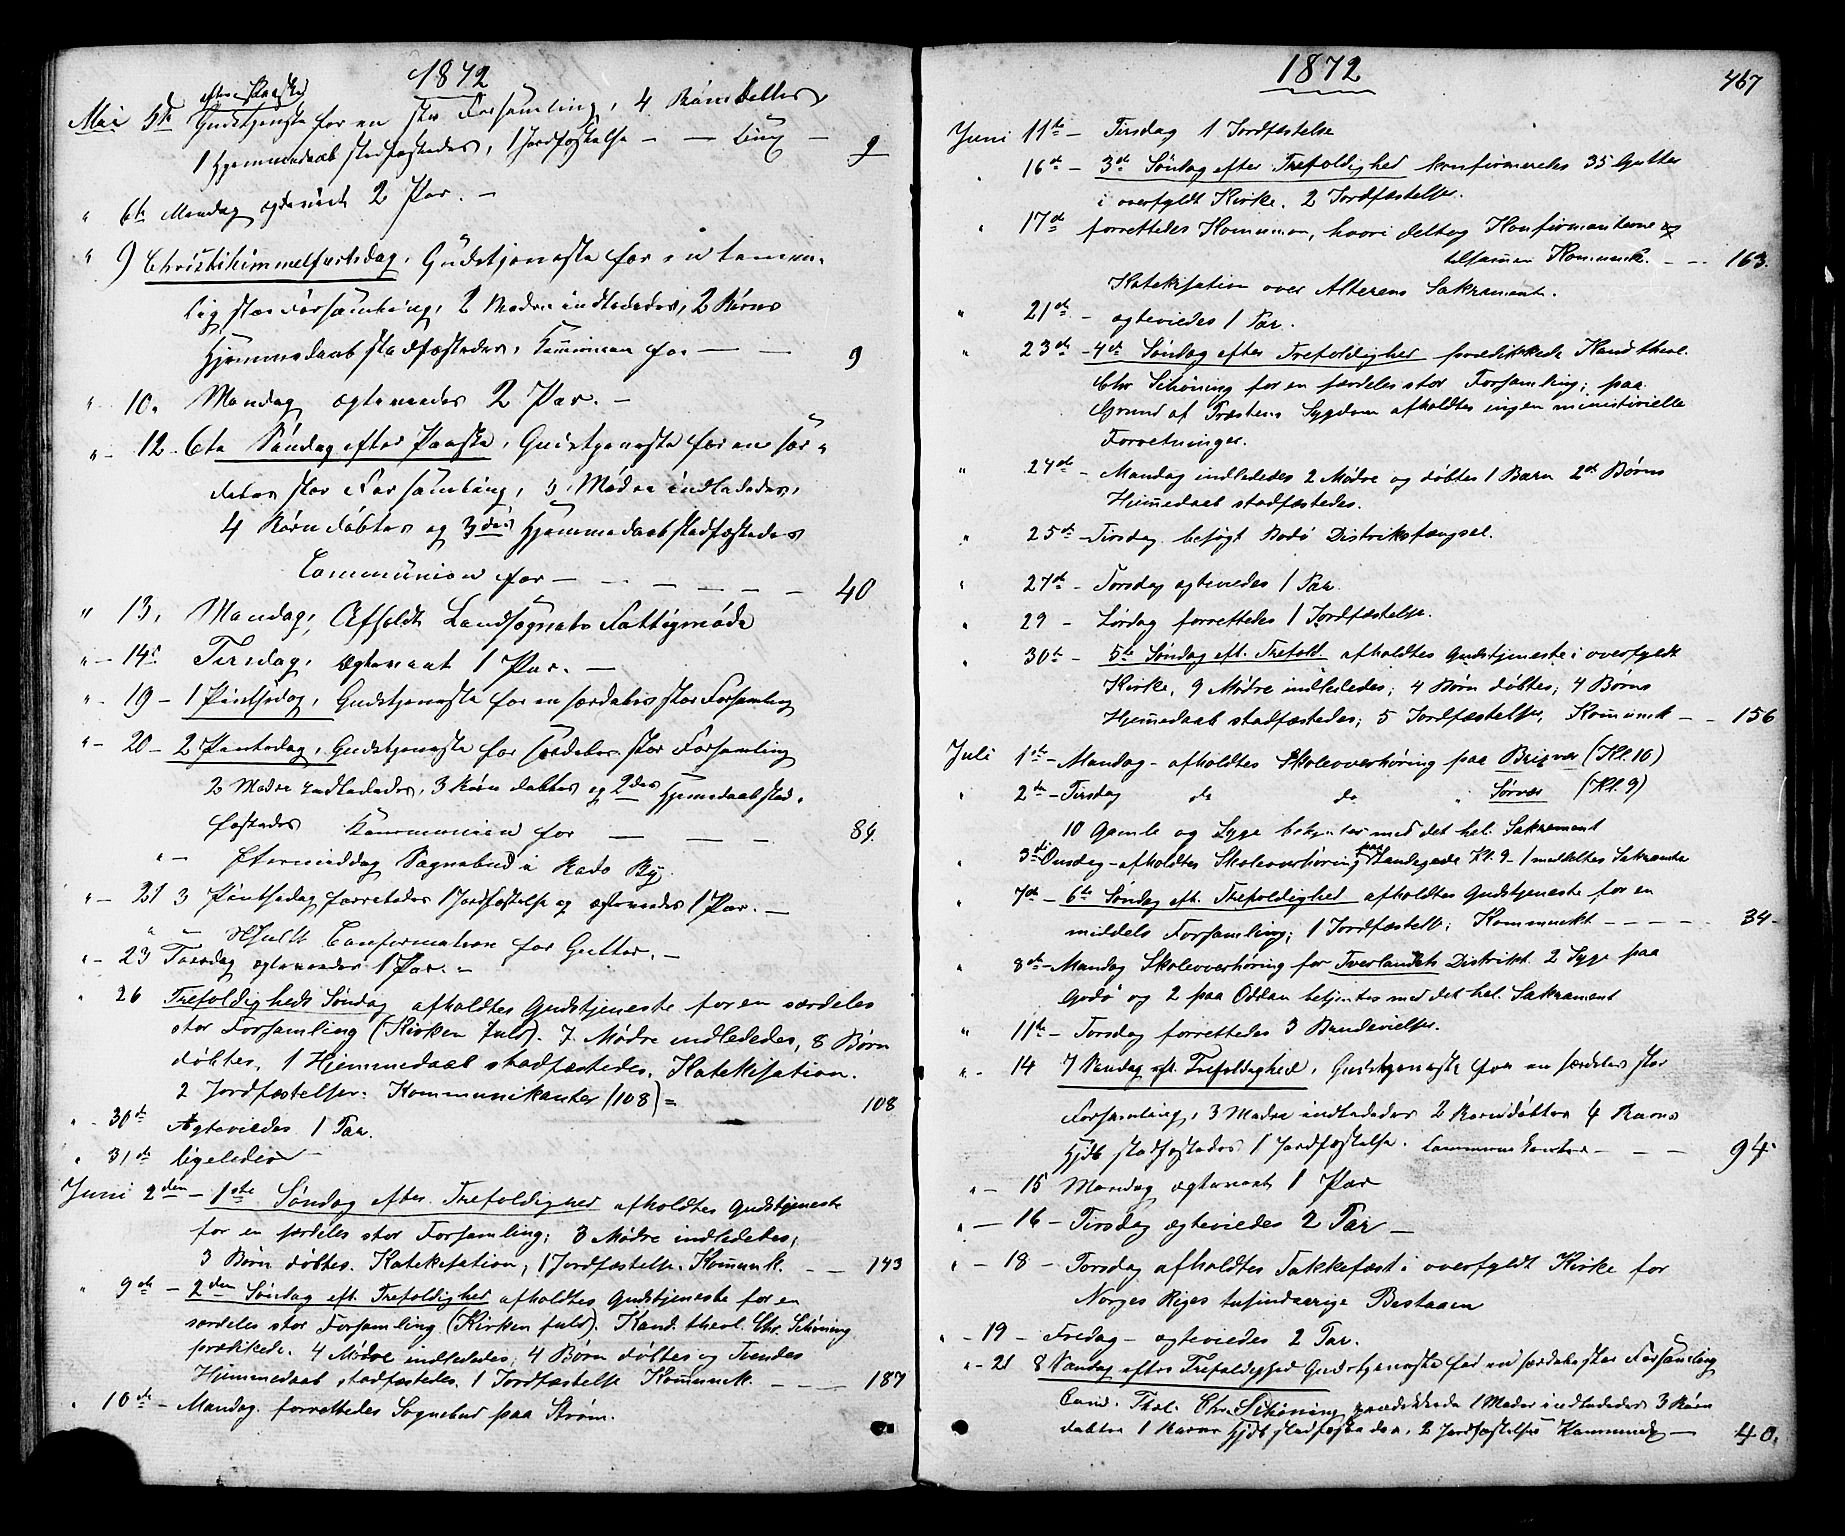 1872
efter Paaske
Mai 5te Gudstjeneste for en stor Forsamling, 4 Børn døbtes
1 Hjemmedaab stadfæstedes, 1 Jordfæstelse — — — 9
" 6te Mandag ægteviet 2 Par. —
" 9 Christihimmelfartsdag, Gudstjeneste for en temme-
lig stor Forsamling, 2 Mødre indlededes, 2 Børns
Hjemmedaab stadfæstedes, Kommunion for — — 9
" 10. Mandag ægteviedes 2 Par. —
" — 12 — 6te Søndag efter Paaske, Gudstjeneste for en sær-
deles stor Forsamling, 3 Mødre indlededes,
4 Børn døbtes og 3des Hjemmedaab stadfæstedes
Communion for — — — — — 40
" 13. Mandag, Afholdt Landsognets Fattigmøde
" — 14de Tirsdag, ægteviet 1 Par. —
" — 19 — 1 Pintsedag, Gudstjeneste for en særdeles stor Forsamling
" — 20 — 2 Pintsedag, Gudstjeneste for særdeles stor Forsamling
2 Mødre indlededes, 3 Børn døbtes og 2des Hjemmedaab stad-
fæstedes Kommunion for — — — 84.
" — Eftermiddag Sognebud i Bodø By.
" — 21 3 Pintsedag forrettedes 1 Jordfæstelse og ægteviedes 1 Par. —
" " Holdt Confirmation for Gutter. —
" — 23 Torsdag ægteviedes 1 Par. —
" 26 Trefoldigheds Søndag afholdtes Gudstjeneste for en særdeles
stor Forsamling (Kirken fuld). 7 Mødre indlededes, 8 Børn
døbtes, 1 Hjemmedaab stadfæstedes. Katekisation.
2 Jordfæstelser. Kommunikanter (108) = 108
" — 30te Ægteviedes 1 Par.
" 31te ligeledes —
Juni 2den — 1ste Søndag efter Trefoldighed afholdtes Gudstjeneste
for en særdeles stor Forsamling; 3 Mødre indlededes;
3 Børn døbtes. Katekisation, 1 Jordfæstelse. Kommunk. — — 143
" 9de — 2den Søndag eft. Trefoldighed afholdtes Gudstjeneste for en
særdeles stor Forsamling (Kirken fuld). Kand. theol. Chr. Schöning
prædikede. 4 Mødre indlededes; 4 Børn døbtes og Tvendes
Hjemmedaab stadfæstedes. 1 Jordfæstelse Kommunk. — — — 187
" 10de — Mandag. forrettedes Sognebud paa Strøm.
1872
467
Juni 11te — Tirsdag 1 Jordfæstelse
" 16de — 3de Søndag efter Trefoldighed konfirmeredes 35 Gutter
i overfyldt Kirke. 2 Jordfæstelser.
" 17de forrettedes Kommunion, hvori deltog Konfirmanterne og
tilsammen Kommunk. — — 163.
Katekisation over Alterens Sakrament.
" 21de — ægteviedes 1 Par.
" 23de — 4de Søndag efter Trefoldighed prædikkede Kand. theol.
Chr Schöning for en særdeles stor Forsamling; paa
Grund af Præstens Sygdom afholdtes ingen ministerielle
Forretninger.
" 24de — Mandag indlededes 2 Mødre og døbtes 1 Barn 2de Børns
Hjemmedaab stadfæstedes.
" 25de — Tirsdag besøgt Bodø Distriktsfængsel.
" 27de — Torsdag ægteviedes 1 Par.
" 29 — Lørdag forrettedes 1 Jordfæstelse.
" 30te — 5te Søndag eft. Trefold. afholdtes Gudstjeneste i overfyldt
Kirke, 9 Mødre indlededes; 4 Børn døbtes; 4 Børns
Hjemmedaab stadfæstedes; 5 Jordfæstelser, Kommunk — — 156
Juli 1ste — Mandag — afholdtes Skoleoverhøring paa Brixvær (Kl. 10)
" 2de — Tirsdag do do " Sørvær (Kl. 9)
10 Gamle og Syge betjentes med det hel. Sakrament
" 3die Onsdag — afholdtes Skoleoverhøring paa Landegode Kl. 9 — 1 meddeltes Sakramentet
" 7de — 6te Søndag eft. Trefoldighed afholdtes Gudstjeneste for en
middels Forsamling; 1 Jordfæstelse; Kommunkt — — — — 34 —
" 8de — Mandag Skoleoverhøring for Tverlandets Distrikt. 2 Syge paa
Godø og 2 paa Oddan betjentes med det hel. Sakrament
" 11te — Torsdag forrettedes 3 Brudevielser.
" — 14 7 Søndag eft. Trefoldighed, Gudstjeneste for en særdeles stor
Forsamling, 3 Mødre indlededes 2 Børn døbtes 4 Børns
Hjdb stadfæstedes 1 Jordfæstelse. Communikanter — — — 94.
" — 15 Mandag ægteviet 1 Par
" — 16 — Tirsdag ægteviedes 2 Par —
" — 18 — Torsdag afholdtes Takkefæst i overfyldt Kirke for
Norges Riges tusindaarige Bestaaen
" — 19 — Fredag — ægteviedes 2 Par.
" — 21 8 Søndag efter Trefoldighed Gudstjeneste for en særdeles stor Forsamling
Cand. Theol. Chr. Schöning prædikede 1 Moder indlededes 3 Børn
døbtes 1 Barns Hjdb stadfæstedes, 2 Jordfæstelser Kommunk — 40.